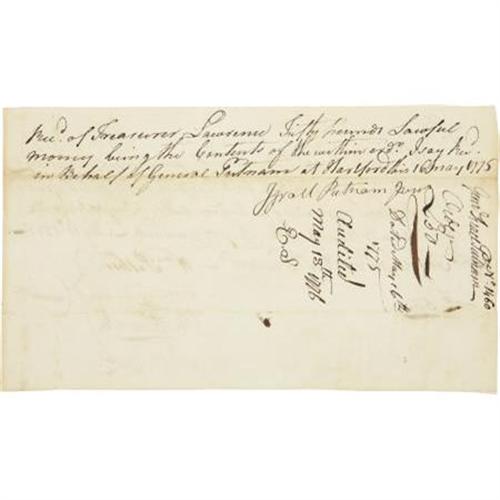 Recd. of Treasurer Lawrence Fifty pounds Lawful
money being the Contents of the within ordr. I say Recd.
in Behalf of General Putnam at Hartford this 16 May 1775
Israll Putnam Junr
Audited
May 13th 1776
E S
1775
Dated May 16th
£50
No. 1460